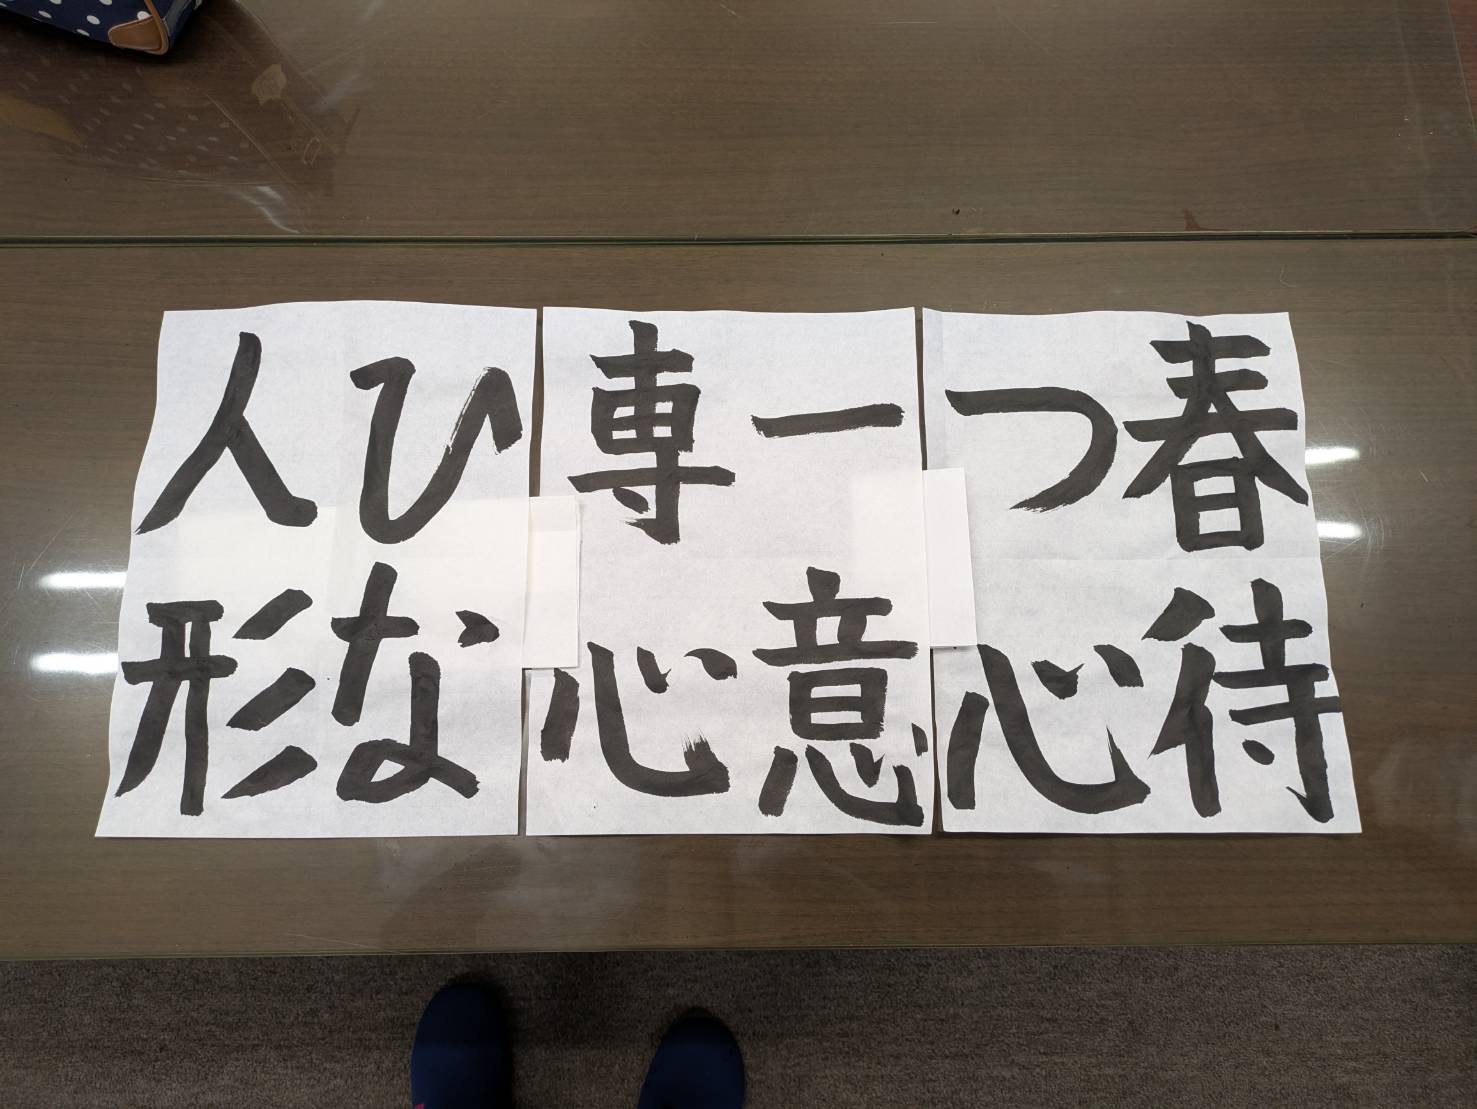 春待
つ心
一意
専心
ひな
人形